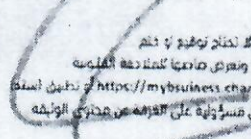 لا تحتاج توقيع أو ختم
وتعرض صاحبها للملاحقة القانونية
https://mybsuiness.cha أو تطبيق
مسؤولية على الغرفة عن محتوى الوثيقة